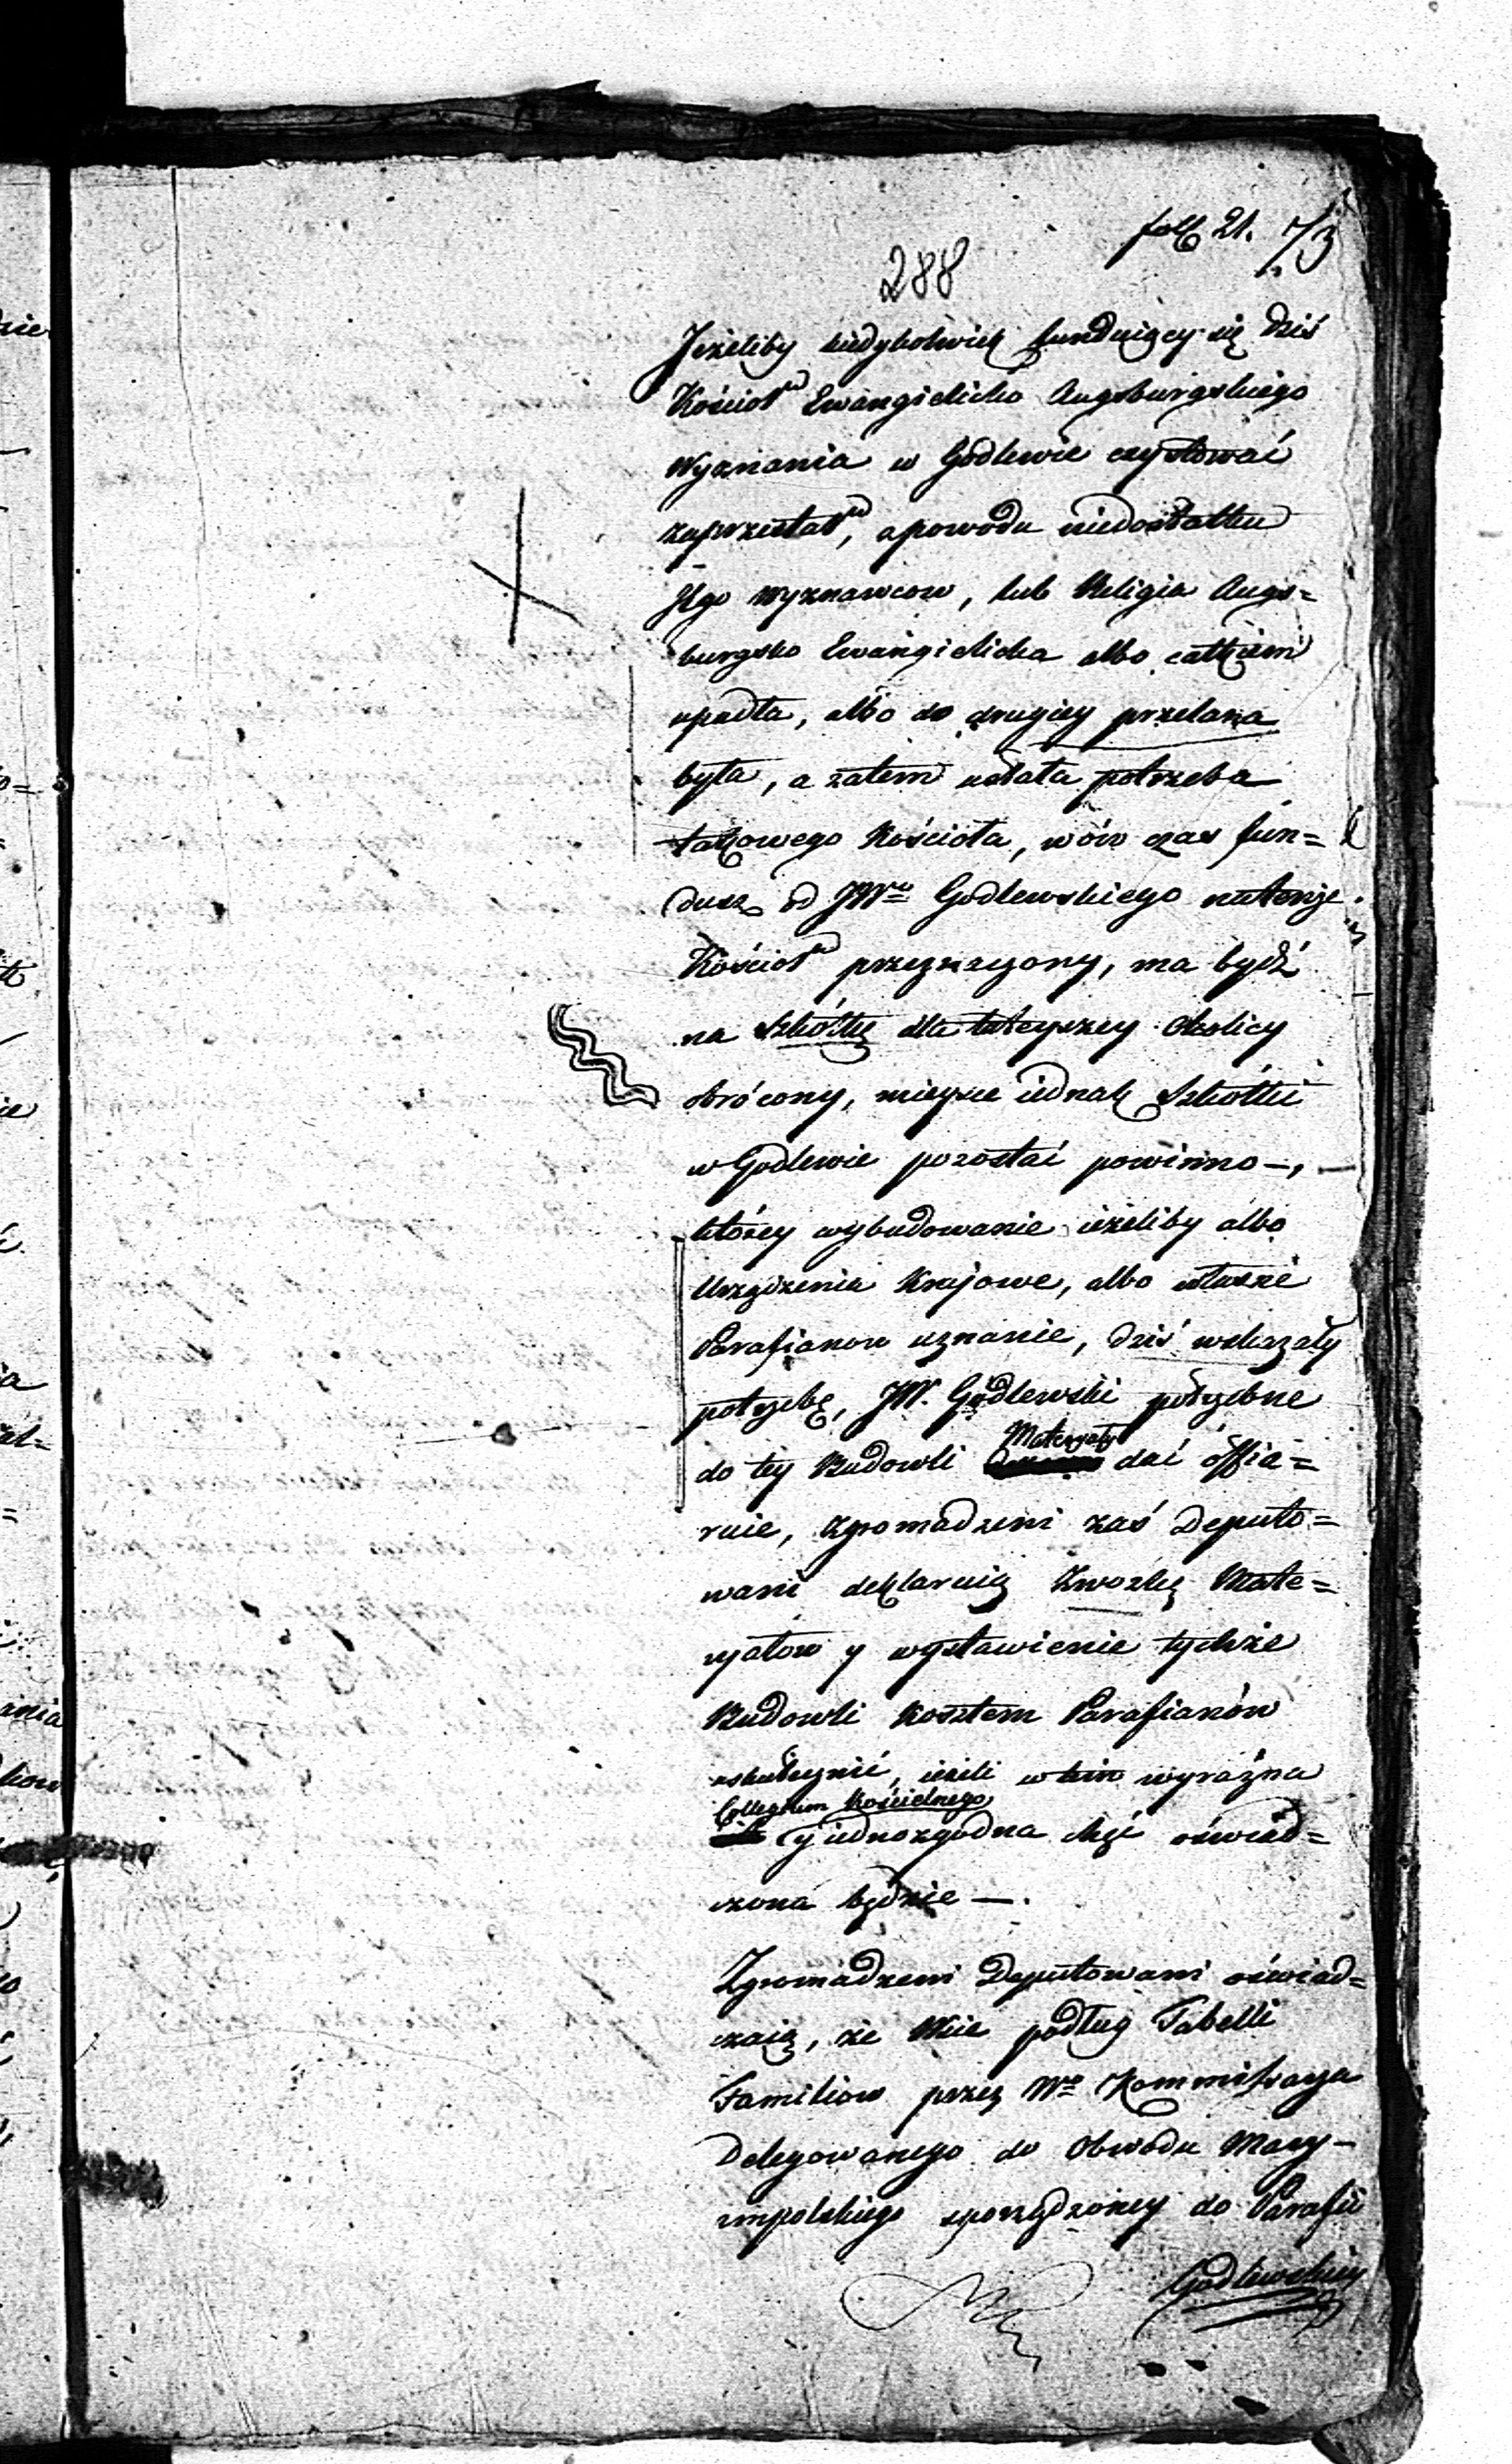 foll 21. 73
288
Jeżeliby kiedykolwiek funduiący się dziś
Kościoł Ewangielicko Augsburgskiego
Wyznania w Godlewie exystować
zaprzestał, z powodu niedostatku
Jego wyznawcow, lub Religia Augs=
burgsko Ewangielicka albo całkiem
upadła, albo do drugiey przelana
była, a zatem ustała potrzeba
takowego Kościoła, wów czas fun=
dusz od JWo Godlewskiego na tenże
Kościoł przeznaczony, ma bydź
na Szkółkę dla tuteyszey Okolicy
obrócony, mieysce iednak Szkółki
w Godlewie pozostać powinno —,
którey wybudowanie ieżeliby albo
Urządzenia Krajowe, albo własne
Parafianow uznanie, dziś wskazały
potrzebę, JW. Godlewski potrzebne
do tey Budowli Materyały dać offia=
ruie, Zgromadzeni zaś Deputo=
wani deklaruią Zwozkę Mate=
ryałow y wystawienie tychże
Budowli Kosztem Parafianów
uskutecznić, ieżeli w tém wyraźna
Collegium Kościelnego
y iednozgodna chęć oświad=
czona będzie —.
Zgromadzeni Deputowani oświad=
czaią, że Wsie podług Tabelli
Familiow przez Wo Kommissarza
Delegowanego do Obwodu Mary-
ampolskiego sporządzoney do Parafii
Godlewskiey